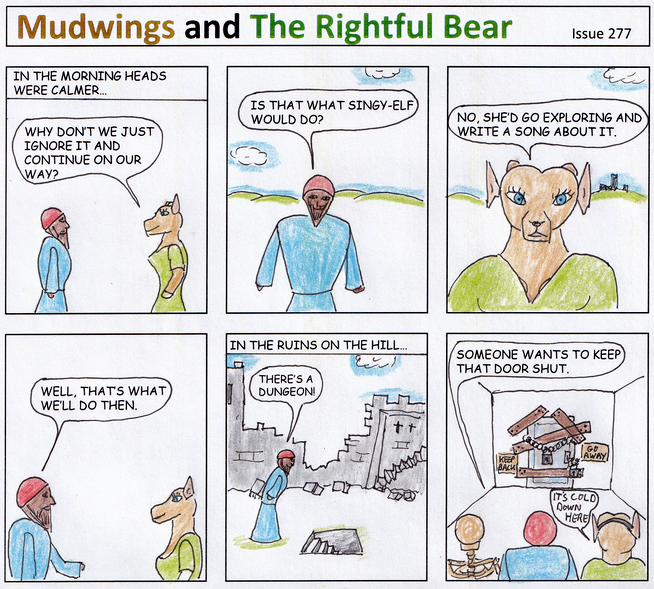 Mudwings and The Rightful Bear
Issue 277
IN THE MORNING HEADS
WERE CALMER...
WHY DON'T WE JUST
IGNORE IT AND
CONTINUE ON OUR
WAY?
IS THAT WHAT SINGY-ELF
WOULD DO?
NO, SHE'D GO EXPLORING AND
WRITE A SONG ABOUT IT.
WELL, THAT'S WHAT
WE'LL DO THEN.
IN THE RUINS ON THE HILL...
THERE'S A
DUNGEON!
SOMEONE WANTS TO KEEP
THAT DOOR SHUT.
KEEP
BACK
GO
AWAY
IT'S COLD
DOWN
HERE